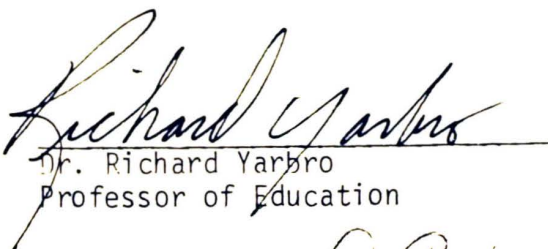 Richard Yarbro
Dr. Richard Yarbro
Professor of Education